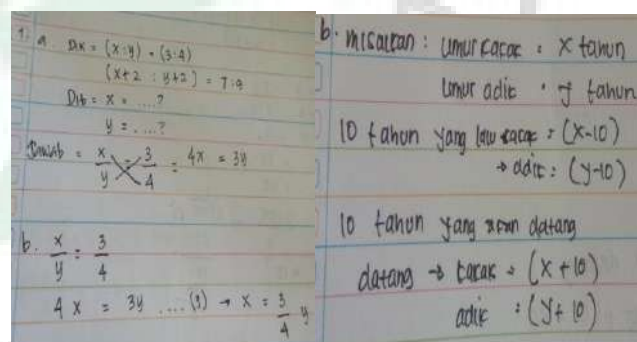 1. a. Dik = (x : y) = (3 : 4)
(x+2 : y+2) = 7 : 9
Dit = x = ....?
y = ....?
Jawab = x/y = 3/4 = 4x = 3y
b. x/y = 3/4
4x = 3y .... (1) → x = 3/4 y
b. misalkan : umur kakak = x tahun
umur adik = y tahun
10 tahun yang lalu kakak = (x-10)
→ adik : (y-10)
10 tahun yang akan datang
datang → kakak = (x + 10)
adik : (y + 10)